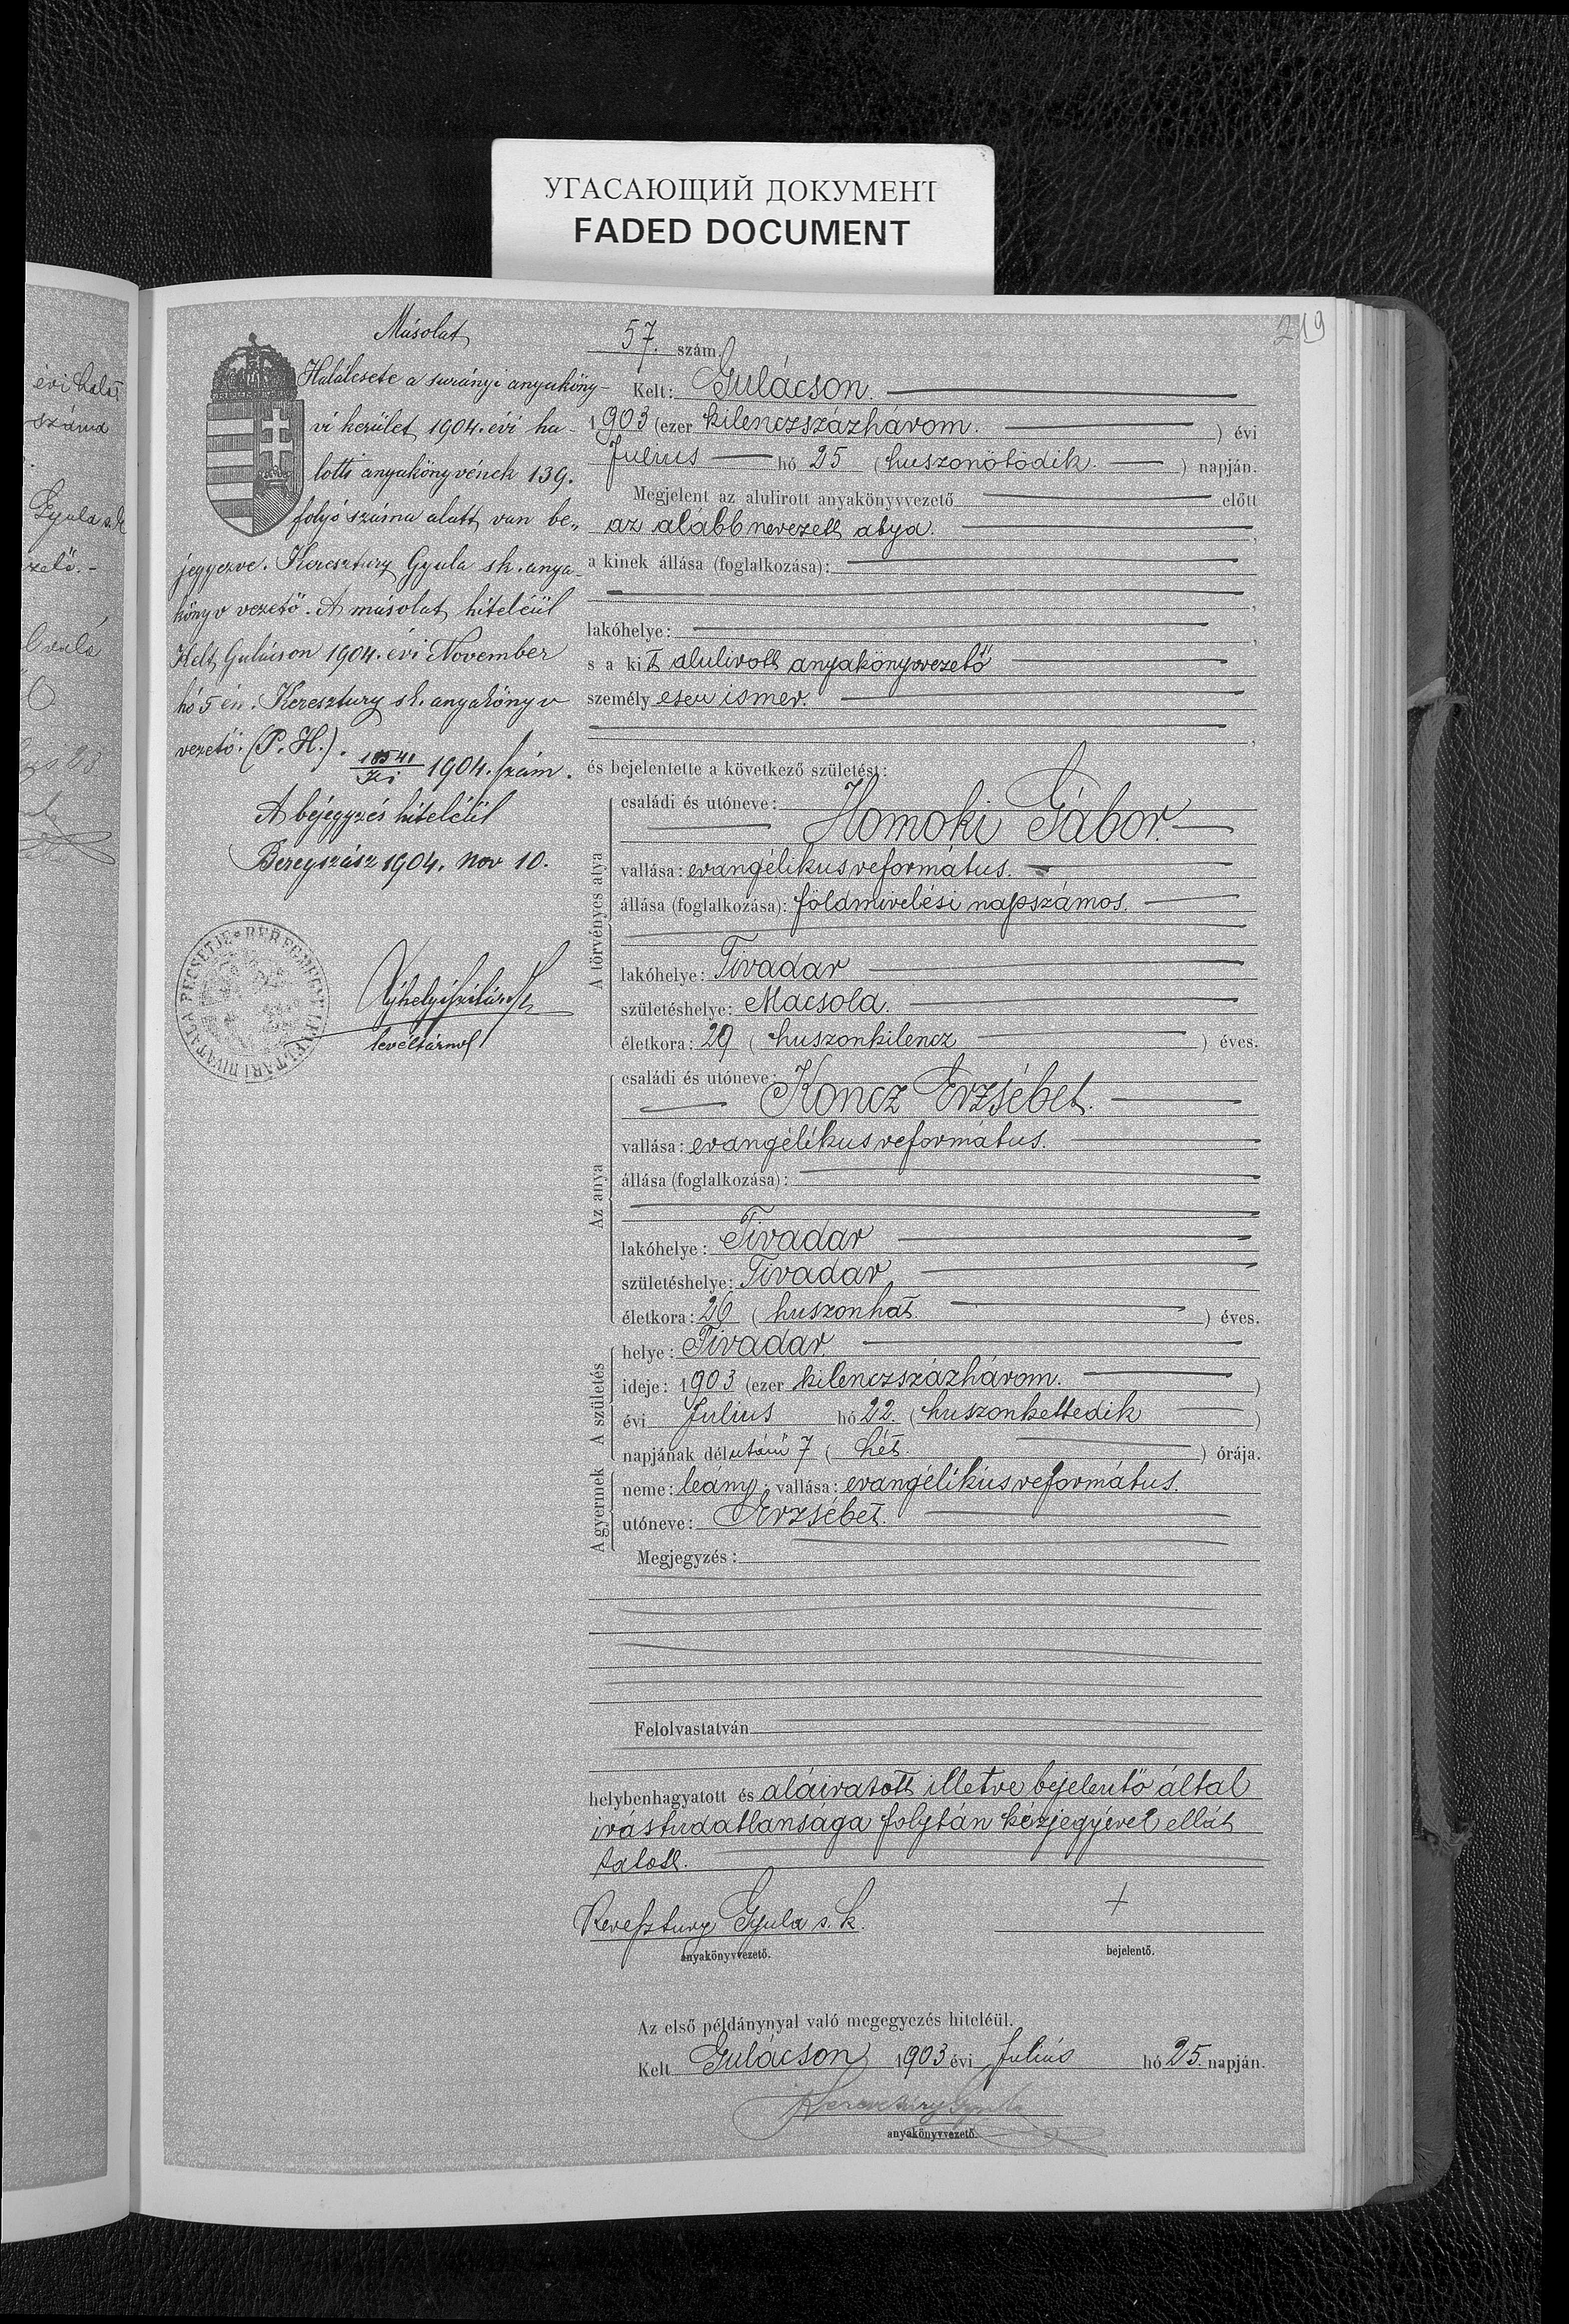 УГАСАЮЩИЙ ДОКУМЕНТ
FADED DOCUMENT
219
évi halot
száma
Gyula s.k.
zető.-
Másolat
Halálesete a surányi anyaköny-
vi kerület 1904. évi ha-
lotti anyakönyvének 139.
folyó száma alatt van be„
jegyezve. Keresztury Gyula sk. anya-
könyv vezető. A másolat hiteléül
Kelt Gulácson 1904. évi November
hó 5 én. Keresztury sk. anyakönyv
vezető. (P. H.).
1904. szám.
A bejegyzés hiteléül
Beregszász 1904. nov 10.
levéltárnok
57. szám.
Kelt: Gulácson.
1903 (ezer kilenczszázhárom. ) évi
Julius hó 25 (huszonötödik. ) napján.
Megjelent az alulirott anyakönyvvezető előtt
az alább nevezett atya.
a kinek állása (foglalkozása):
lakóhelye:
s a kit alulirott anyakönyvvezető
személyesen ismer.
és bejelentette a következő születést:
A törvényes atya
családi és utóneve:
Homoki Gábor.
vallása: evangélikus református.
állása (foglalkozása): földmivelési napszámos.
lakóhelye: Tivadar
születéshelye: Macsola.
életkora: 29 (huszonkilencz ) éves.
Az anya
családi és utóneve:
Koncz Erzsébet.
vallása: evangélikus református.
állása (foglalkozása):
lakóhelye: Tivadar
születéshelye: Tivadar
életkora: 26 (huszonhat. ) éves.
A születés
helye: Tivadar.
ideje: 1903 (ezer kilenczszázhárom. )
évi Julius hó 22. (huszonkettedik )
napjának délutáni 7 (hét. ) órája.
A gyermek
neme: leány; vallása: evangélikus református.
utóneve: Erzsébet.
Megjegyzés:
Felolvastatván
helybenhagyatott és aláiratott illetve bejelentő által
irástudatlansága folytán kézjegyével ellát
tatott.
Keresztury Gyula s. k. +
anyakönyvvezető. bejelentő.
Az első példánynyal való megegyezés hiteléül.
Kelt Gulácson 1903 évi Julius hó 25. napján.
Keresztury Gyula
anyakönyvvezető.